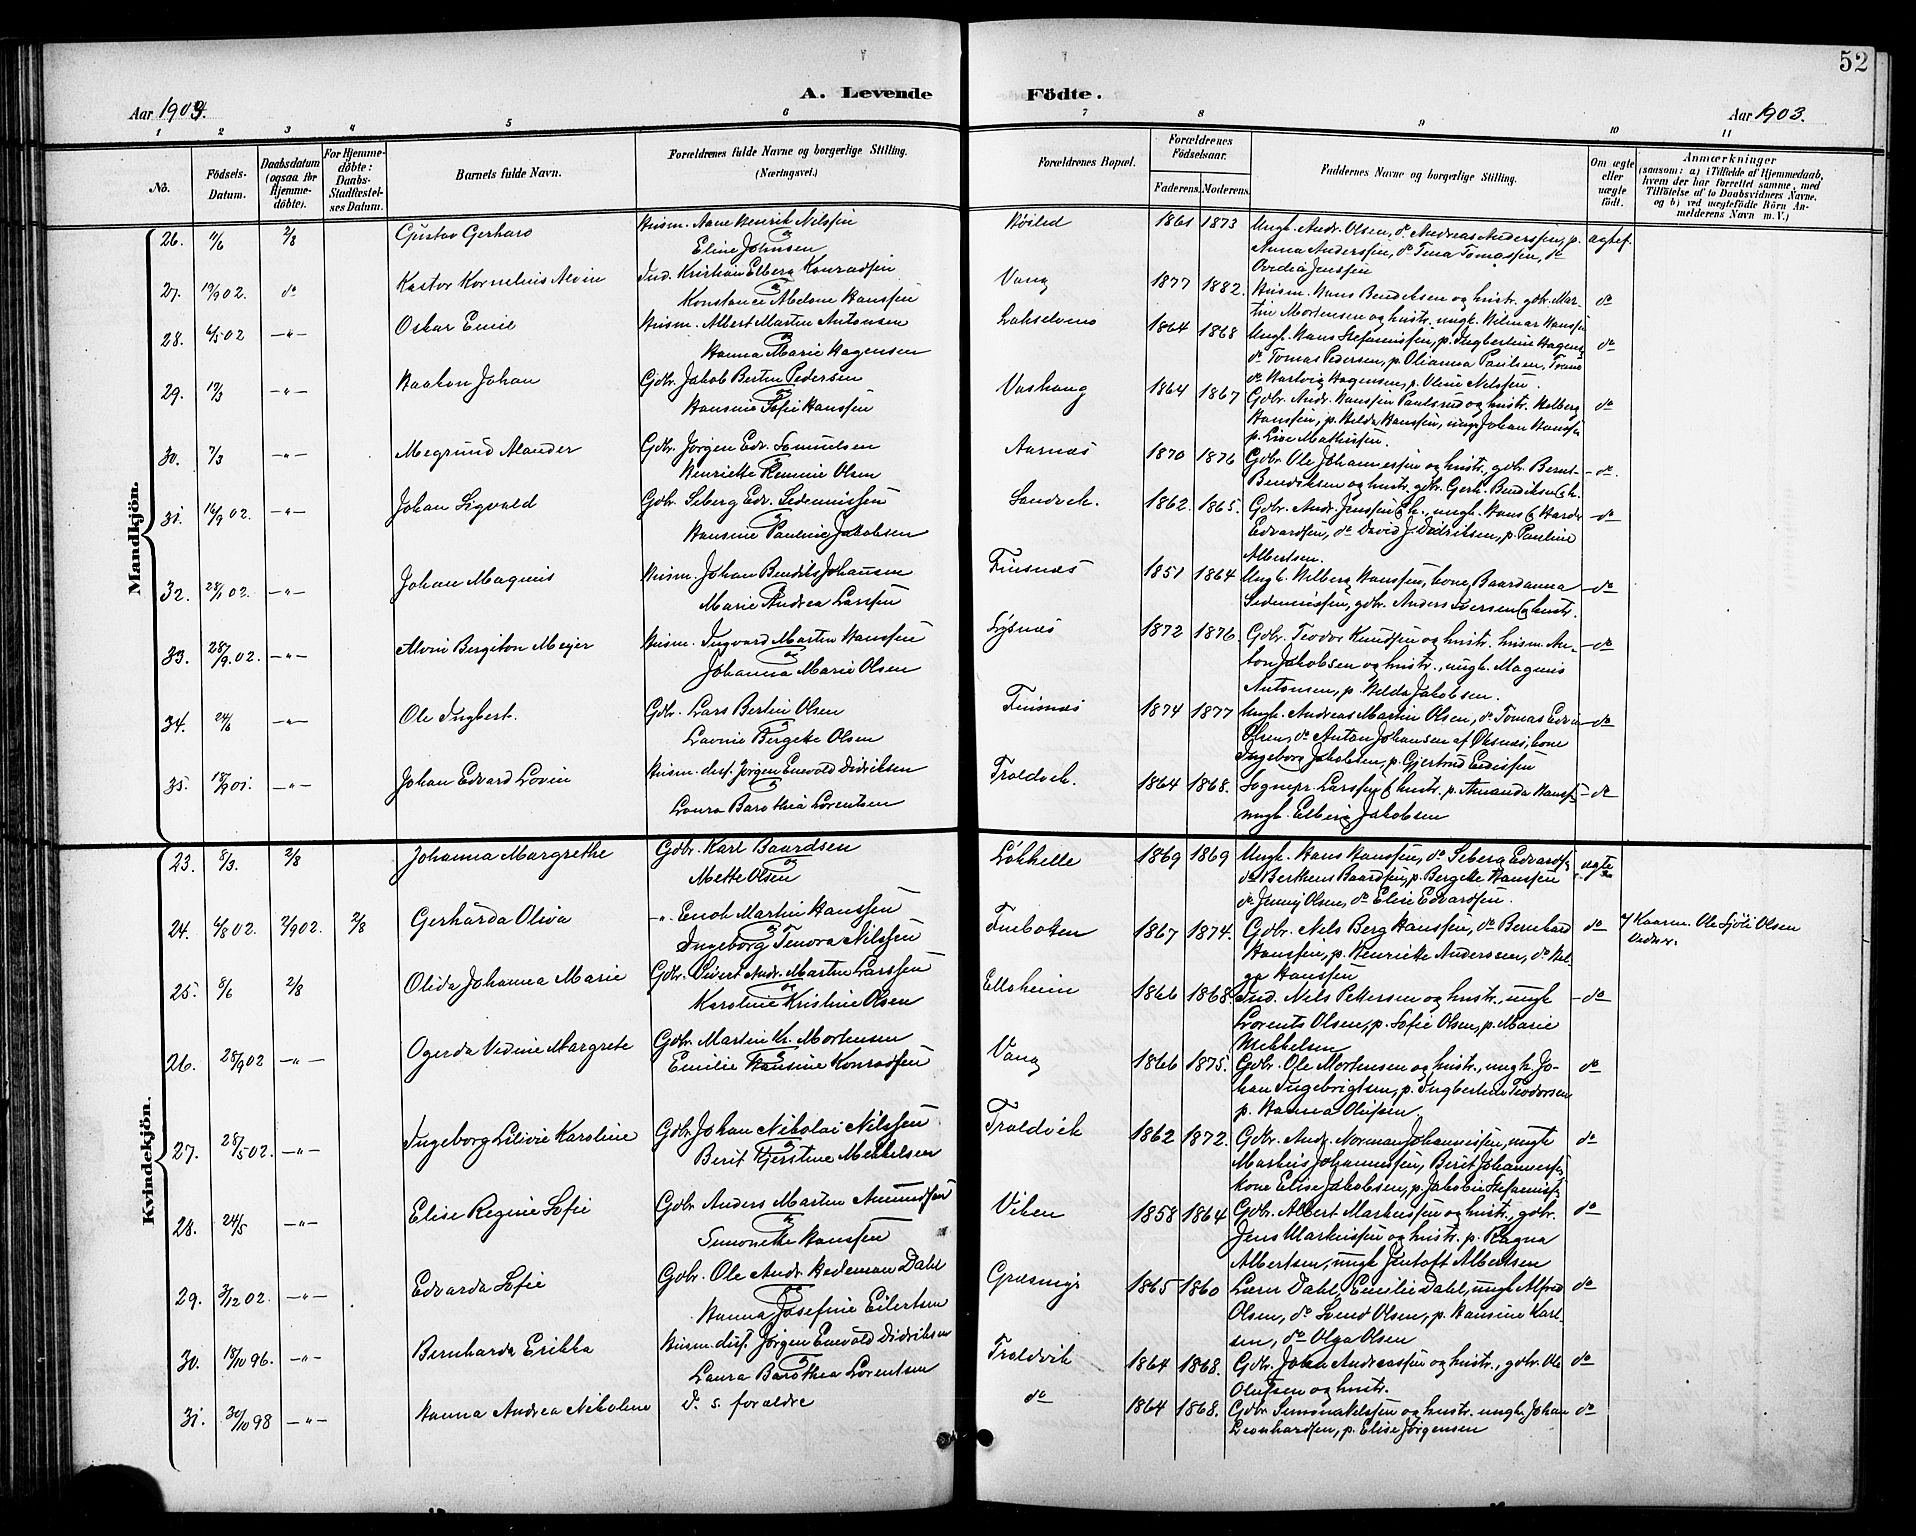 52
Aar 1903.
A. Levende
Födte.
Aar 1903.
1 2 3 4 5 6 7 8 9 10 11
No.
Födsels-Datum.
Daabsdatum (ogsaa for Hjemme-döbte).
For Hjemme-döbte: Daabs-Stadfæstel-ses Datum.
Barnets fulde Navn.
Forældrenes fulde Navne og borgerlige Stilling. (Næringsvei.)
Forældrenes Bopæl.
Forældrenes Födselsaar.
Faderens. Moderens.
Faddernes Navne og borgerlige Stilling.
Om ægte eller uægte födt.
Anmærkninger
(saasom: a) i Tilfælde af Hjemmedaab,
hvem der har forrettet samme, med
Tilföielse af to Daabsvidners Navne.
og b) ved uægtefödte Börn An-
melderens Navn m. V.)
Mandkjön.
26. 2/8 Gustav Gerhard
Husm. Aane Henrik Nilssen
og
Eline Johnsen
1861 1873 Ungk. Andr. Olsen, do Andreas Anderssen, p.
Anna Anderssen, do Tina Tomassen, do
Ovedia Jenssen
ægtef.
27. 19/9 02. do Kastor Kornelius Alvin
Ind. Kristian Elberg Konradsen
Konstance Abelone Hanssen
Vang 1877 1882. Husm. Hans Bendiksen og hustr. gdbr. Mar-
tin Mortensen og hustr. ungk. Hilmar Hanssen
do
28. 6/5 02 —"— Oskar Emil
Husm. Albert Martin Antonsen
og
Hanna Marie Hagensen
1864 1868 Ungk. Hans Stefanussen, p. Ingbertine Hagens.
do Tomas Pedersen, p. Olianna Paulsen,
do Hartvig Hagensen, p. Oline Nilssen.
do
29. 19/3 —"— Haakon Johan
Gdbr. Jakob Bertin Pedersen
og
Hansine Sofie Hanssen
Vashaug 1864 1867 Gdbr. Andr. Hanssen Paulsrud og hustr. Helberg
Hanssen, p. Hilda Hanssen, ungk. Johan Hanssen
p. Live Mathissen.
do
30. 7/3 —"— Megrund Alander
Gdbr. Jørgen Edv. Samuelsen
Henriette Hermine Olsen
Aarnæs 1870 1876 Gdbr. Ole Johannessen og hustr., gdbr. Bernt
Bendiksen og hustr. gdbr. Gerh. Bendiksen & h.
—do
31. 16/9 02. —"— Johan Sigvald
Gdbr. Seberg Edv. Sedeniussen
og
Hansine Pauline Jakobsen
Sandvik. 1862. 1865. Gdbr. Andr. Jenssen & h., ungk. Hans & Hardr.
Edvardsen, do David J. Didriksen, p. Pauline
Albertsen.
—do
32. —"— Johan Magnus
Husm. Johan Bendik Johansen
og
Marie Andrea Larssen
Finsnæs 1851 1864 Ungk. Hilberg Hanssen, kone Baardanna
Sedeniussen, gdbr. Anders Iversen & hustr.
—do
33. 28/9 02. —"— Alvin Bergiton Meyer
Husm. Ingvard Martin Hanssen
og
Johanna Marie Olsen
Lysnæs 1872 1876 Gdbr. Teodor Knudsen og hustr. husm. An-
ton Jakobsen og hustr., ungk. Magnus
Antonsen, p. Hilda Jakobsen.
—do
34. 24/6 —"— Ole Ingbert.
Gdbr. Lars Bertin Olsen
og
Lavine Bergette Olsen
Finsnæs 1874 1877 Ungk. Andreas Martin Olsen, do Tomas Edv.
Olsen, do Anton Johansen af Øksnæs, kone
Ingeborg Jakobsen, p. Gjertrud
—do
35. 18/9 01. —"— Johan Edvard Lovin
Husm. diss. Jørgen Enevold Didriksen
og
Laura Barothea Lorentsen
Troldvik. 1864 1868. Sognepr. Larssen & hustr. p. Amanda Hanss.
ungk. Elberg Jakobsen
—do
Kvindekjön.
23. 8/3. 2/8 Johanna Margrethe
Gdbr. Karl Baardsen
og
Mette Olsen
Løkhelle 1869 1869 Ungk. Hans Hanssen, do Seberg Edvards.
do Berthens Baardsen, p. Bergette Hanssen
do Jenny Olsen, do Elise Edvardsen.
ægte
24. 6/8 02. 7/9 02. 2/8 Gerharda Oliva
—"— Enok Martin Hanssen
og
Ingeborg Tenora Nilssen
Finbotten 1867 1874. Gdbr. Nels Berg Hanssen, do Bernhard
Hanssen, p. Henrikke Anderssen, do Hel-
ga Hanssen
do
Ole Olsen
25. 8/6 2/8 Olida Johanna Marie
Gdbr. Sivert Andr. Martin Larssen
og
Karoline Kristine Olsen
Elloheim 1866 1868. Ind. Nels Pettersen og hustr., ungk
Lorents Olsen, p. Sofie Olsen, p. Marie
Mikkelsen
—do
26. 28/9 02 —"— Ogerda Vedine Margrete
Gdbr. Martin Kr. Mortensen
og
Emilie Hansine Konradsen
Vang 1866 1875. Gdbr. Ole Mortensen og hustr., ungk. Jo-
han Ingebrigtsen, p. Ingbertine Teodorsen
p. Hanna Olufsen
do
27. 28/5 02. —"— Ingeborg Lilivie Karoline
Gdbr. Johan Nikolai Nilssen
og
Berit Kjerstine Mikkelsen
Troldvik 1862 1872. Gdbr. Andr. Norman Johannessen, ungk
Markus Johannessen, Berit Johanness.
kone Elise Jakobsen, p. Jakobine Stefanuss.
do
28. 24/5 —"— Elise Regine Sofie
Gdbr. Anders Martin Amundsen
og
Simonette Hanssen
Viken 1858 1864 Gdbr. Albert Markussen og hustr., gdbr.
Jens Markussen og hustr. p. Ragna
Albertsen, ungk Jentoft Albertsen
do
29. 3/12 02. —"— Edvarda Sofie
Gdbr. Ole Andr. Hedeman Dahl
og
Hanna Josefine Eilertsen
Græsmyr 1865 1860 Lærer Dahl, Emilie Dahl, ungk Alfred
Olsen, do Svend Olsen, p. Hansine Karl-
sen, do Olga Olsen
do
30. 18/10 96. —"— Bernharda Erikka
Husm. diss. Jørgen Enevold Didriksen
og
Laura Barothea Lorentsen
Troldvik 1864 1868. Gdbr. Johan Andreassen og hustr., gdbr. Ole
Olufsen og hustr.
do
31. 30/10 98 —"— Hanna Andrea Nikoline
D. s. forældre
do 1864 1868. Gdbr. Simon Nilssen og hustr. ungk. Johan
Leonhardsen, p. Elise Jørgensen
do